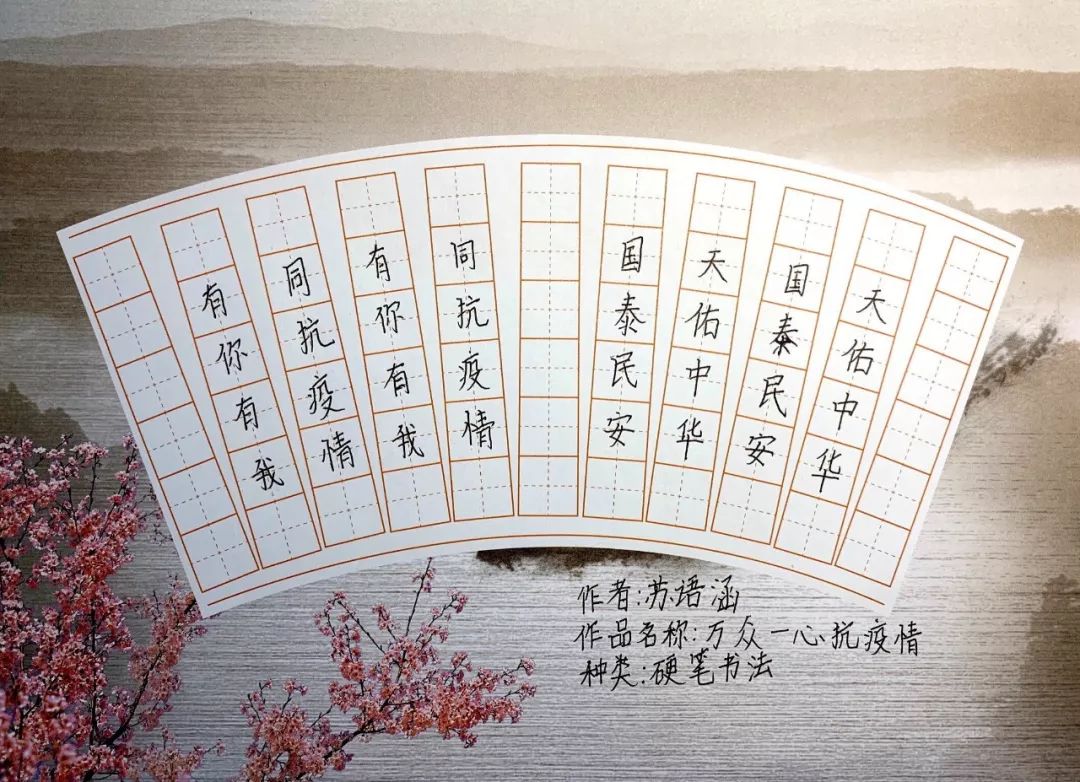 天佑中华
国泰民安
天佑中华
国泰民安
同抗疫情
有你有我
同抗疫情
有你有我
作者:苏语涵
作品名称:万众一心抗疫情
种类:硬笔书法